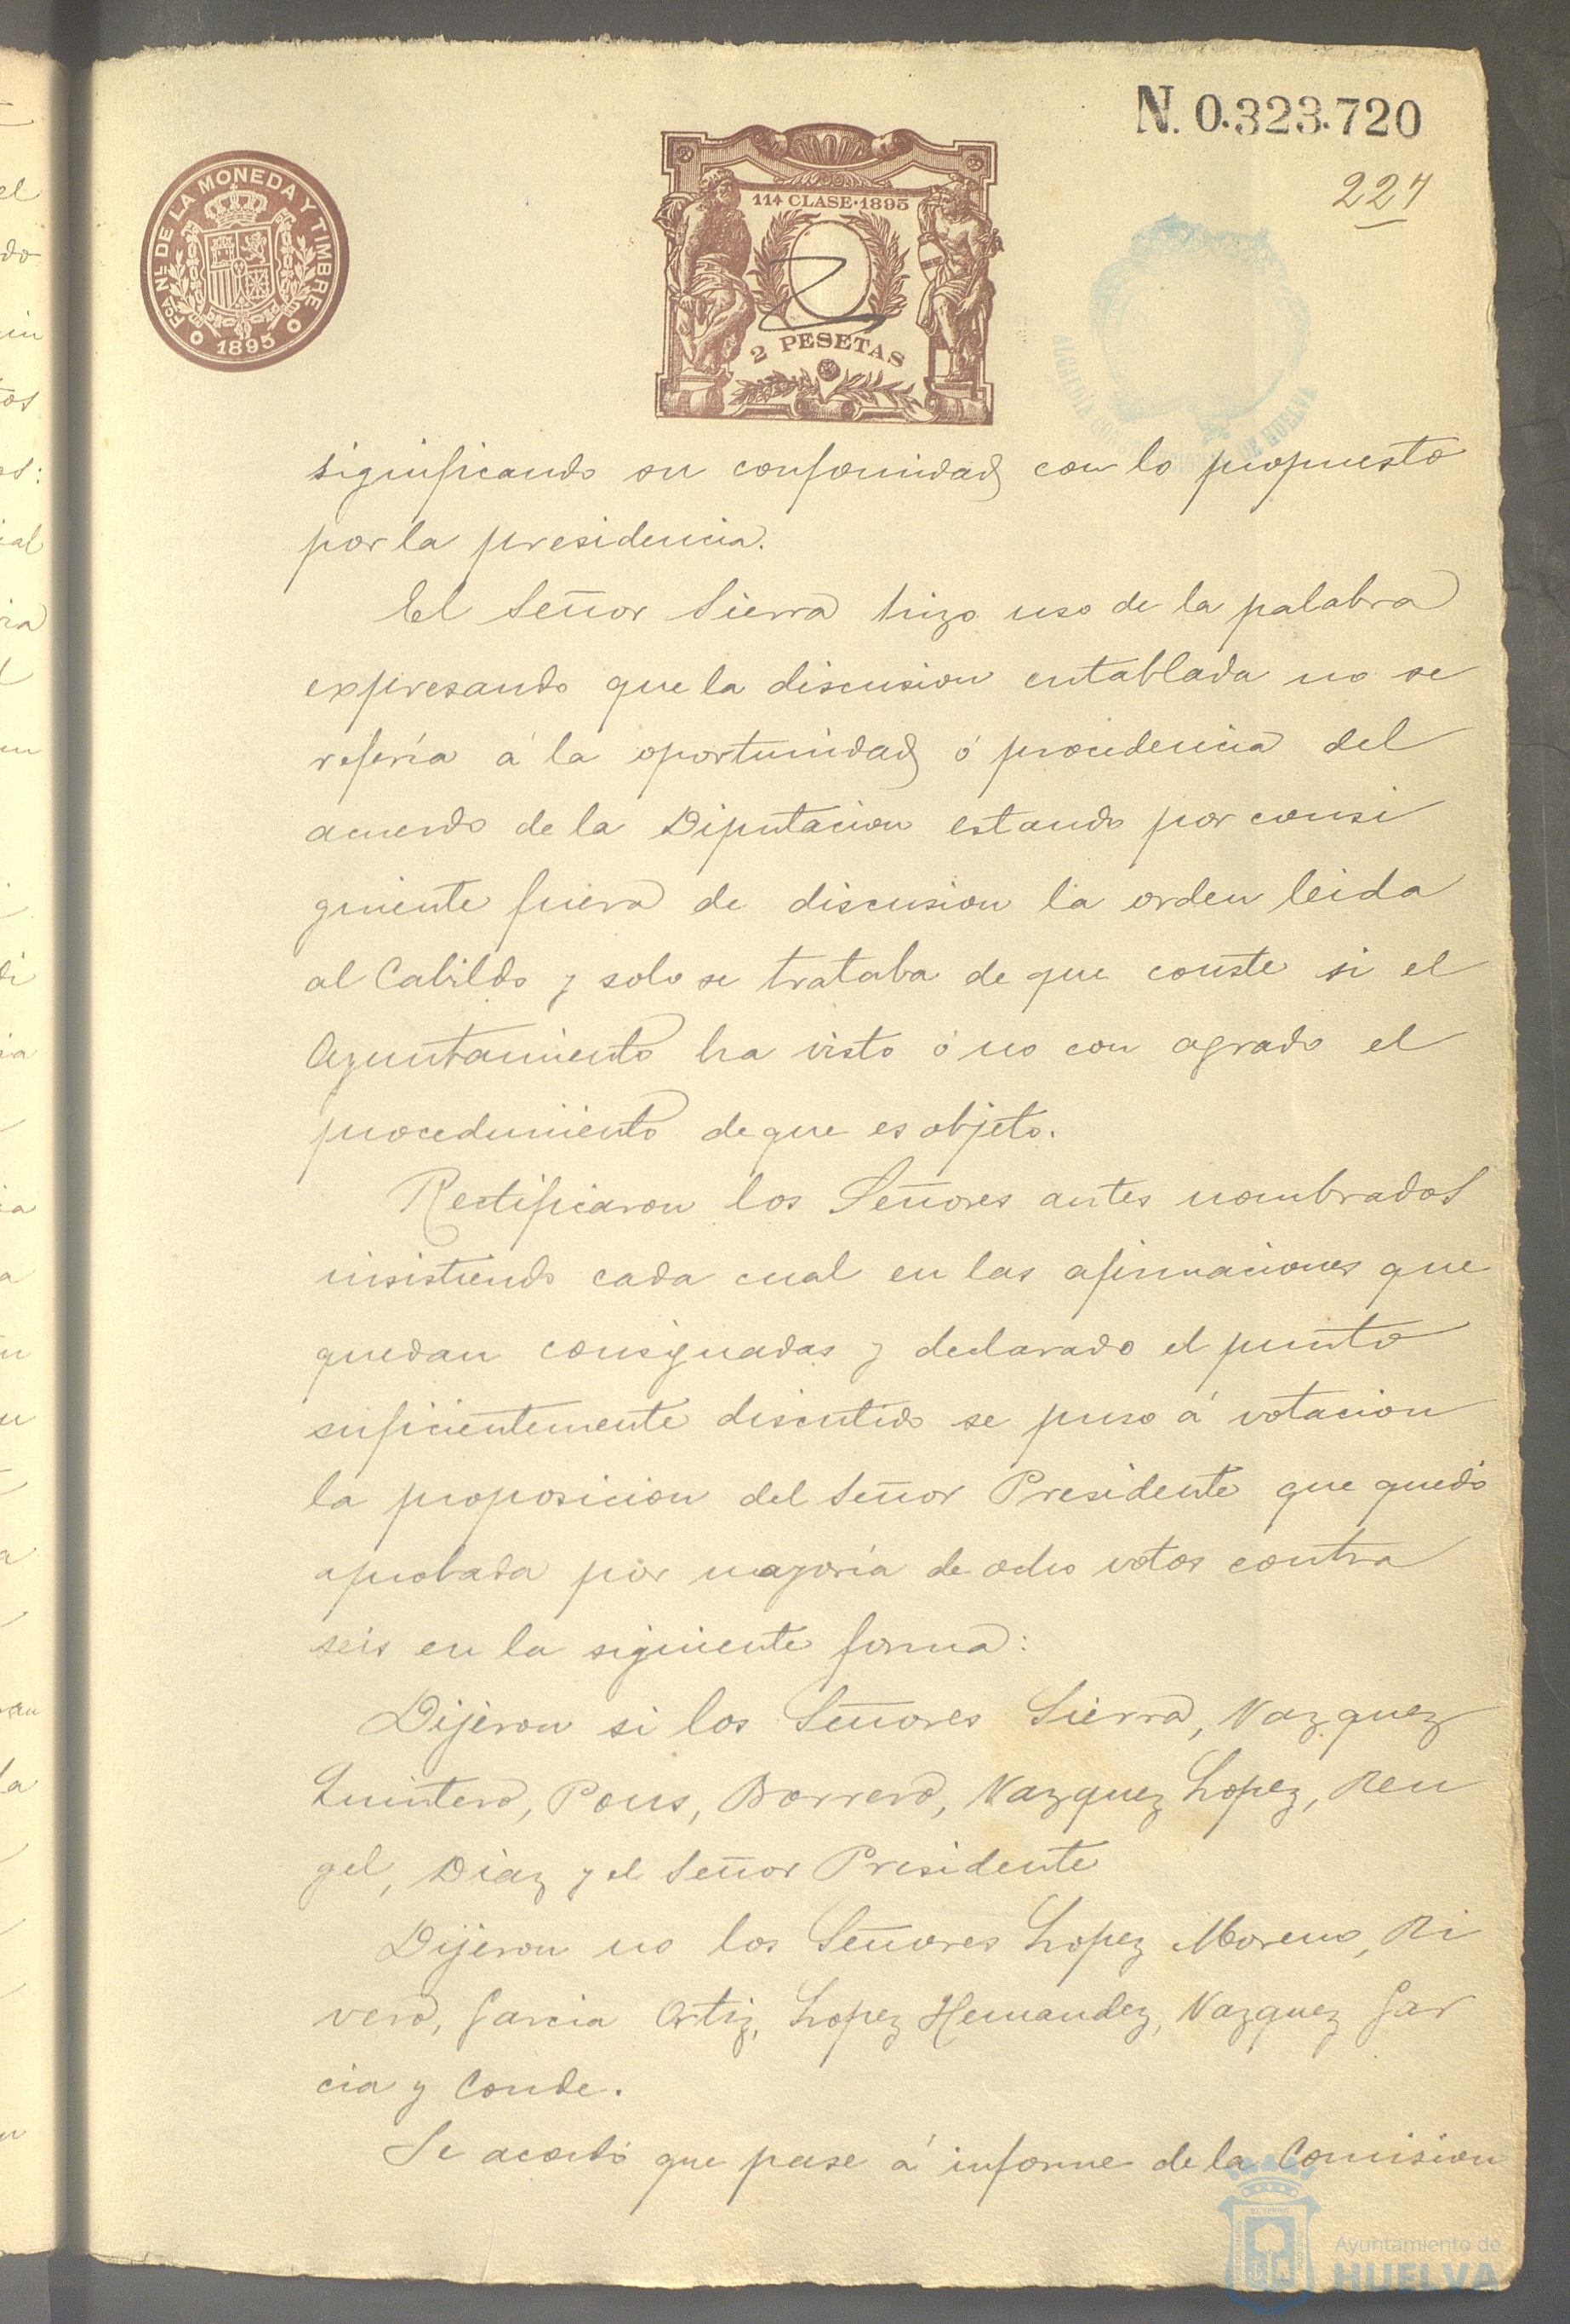 N. 0.323.720
227
Fca Nl DE LA MONEDA Y TIMBRE
1895
11ª CLASE·1895
2 PESETAS
ALCALDÍA CONSTITUCIONAL DE HUELVA
significando su conformidad con lo propuesto
por la presidencia.
El Señor Sierra hizo uso de la palabra
expresando que la discusion entablada no se
refería á la oportunidad ó procedencia del
acuerdo de la Diputacion estando por consi
guiente fuera de discusion la orden leida
al Cabildo y solo se trataba de que conste si el
Ayuntamiento ha visto ó no con agrado el
procedimiento de que es objeto.
Rectificaron los Señores antes nombrados
insistiendo cada cual en las afirmaciones que
quedan consignadas y declarado el punto
suficientemente discutido se puso á votacion
la proposicion del Señor Presidente que quedó
aprobada por mayoría de ocho votos contra
seis en la siguiente forma:
Dijeron si los Señores Sierra, Vazquez
Quintero, Pons, Borrero, Vazquez Lopez, Ren
gel, Diaz y el Señor Presidente
Dijeron no los Señores Lopez Moreno, Ri
vero, Garcia Ortiz, Lopez Hernandez, Vazquez Gar
cia y Conde.
Se acordó que pase á informe de la Comision
Ayuntamiento de
HUELVA